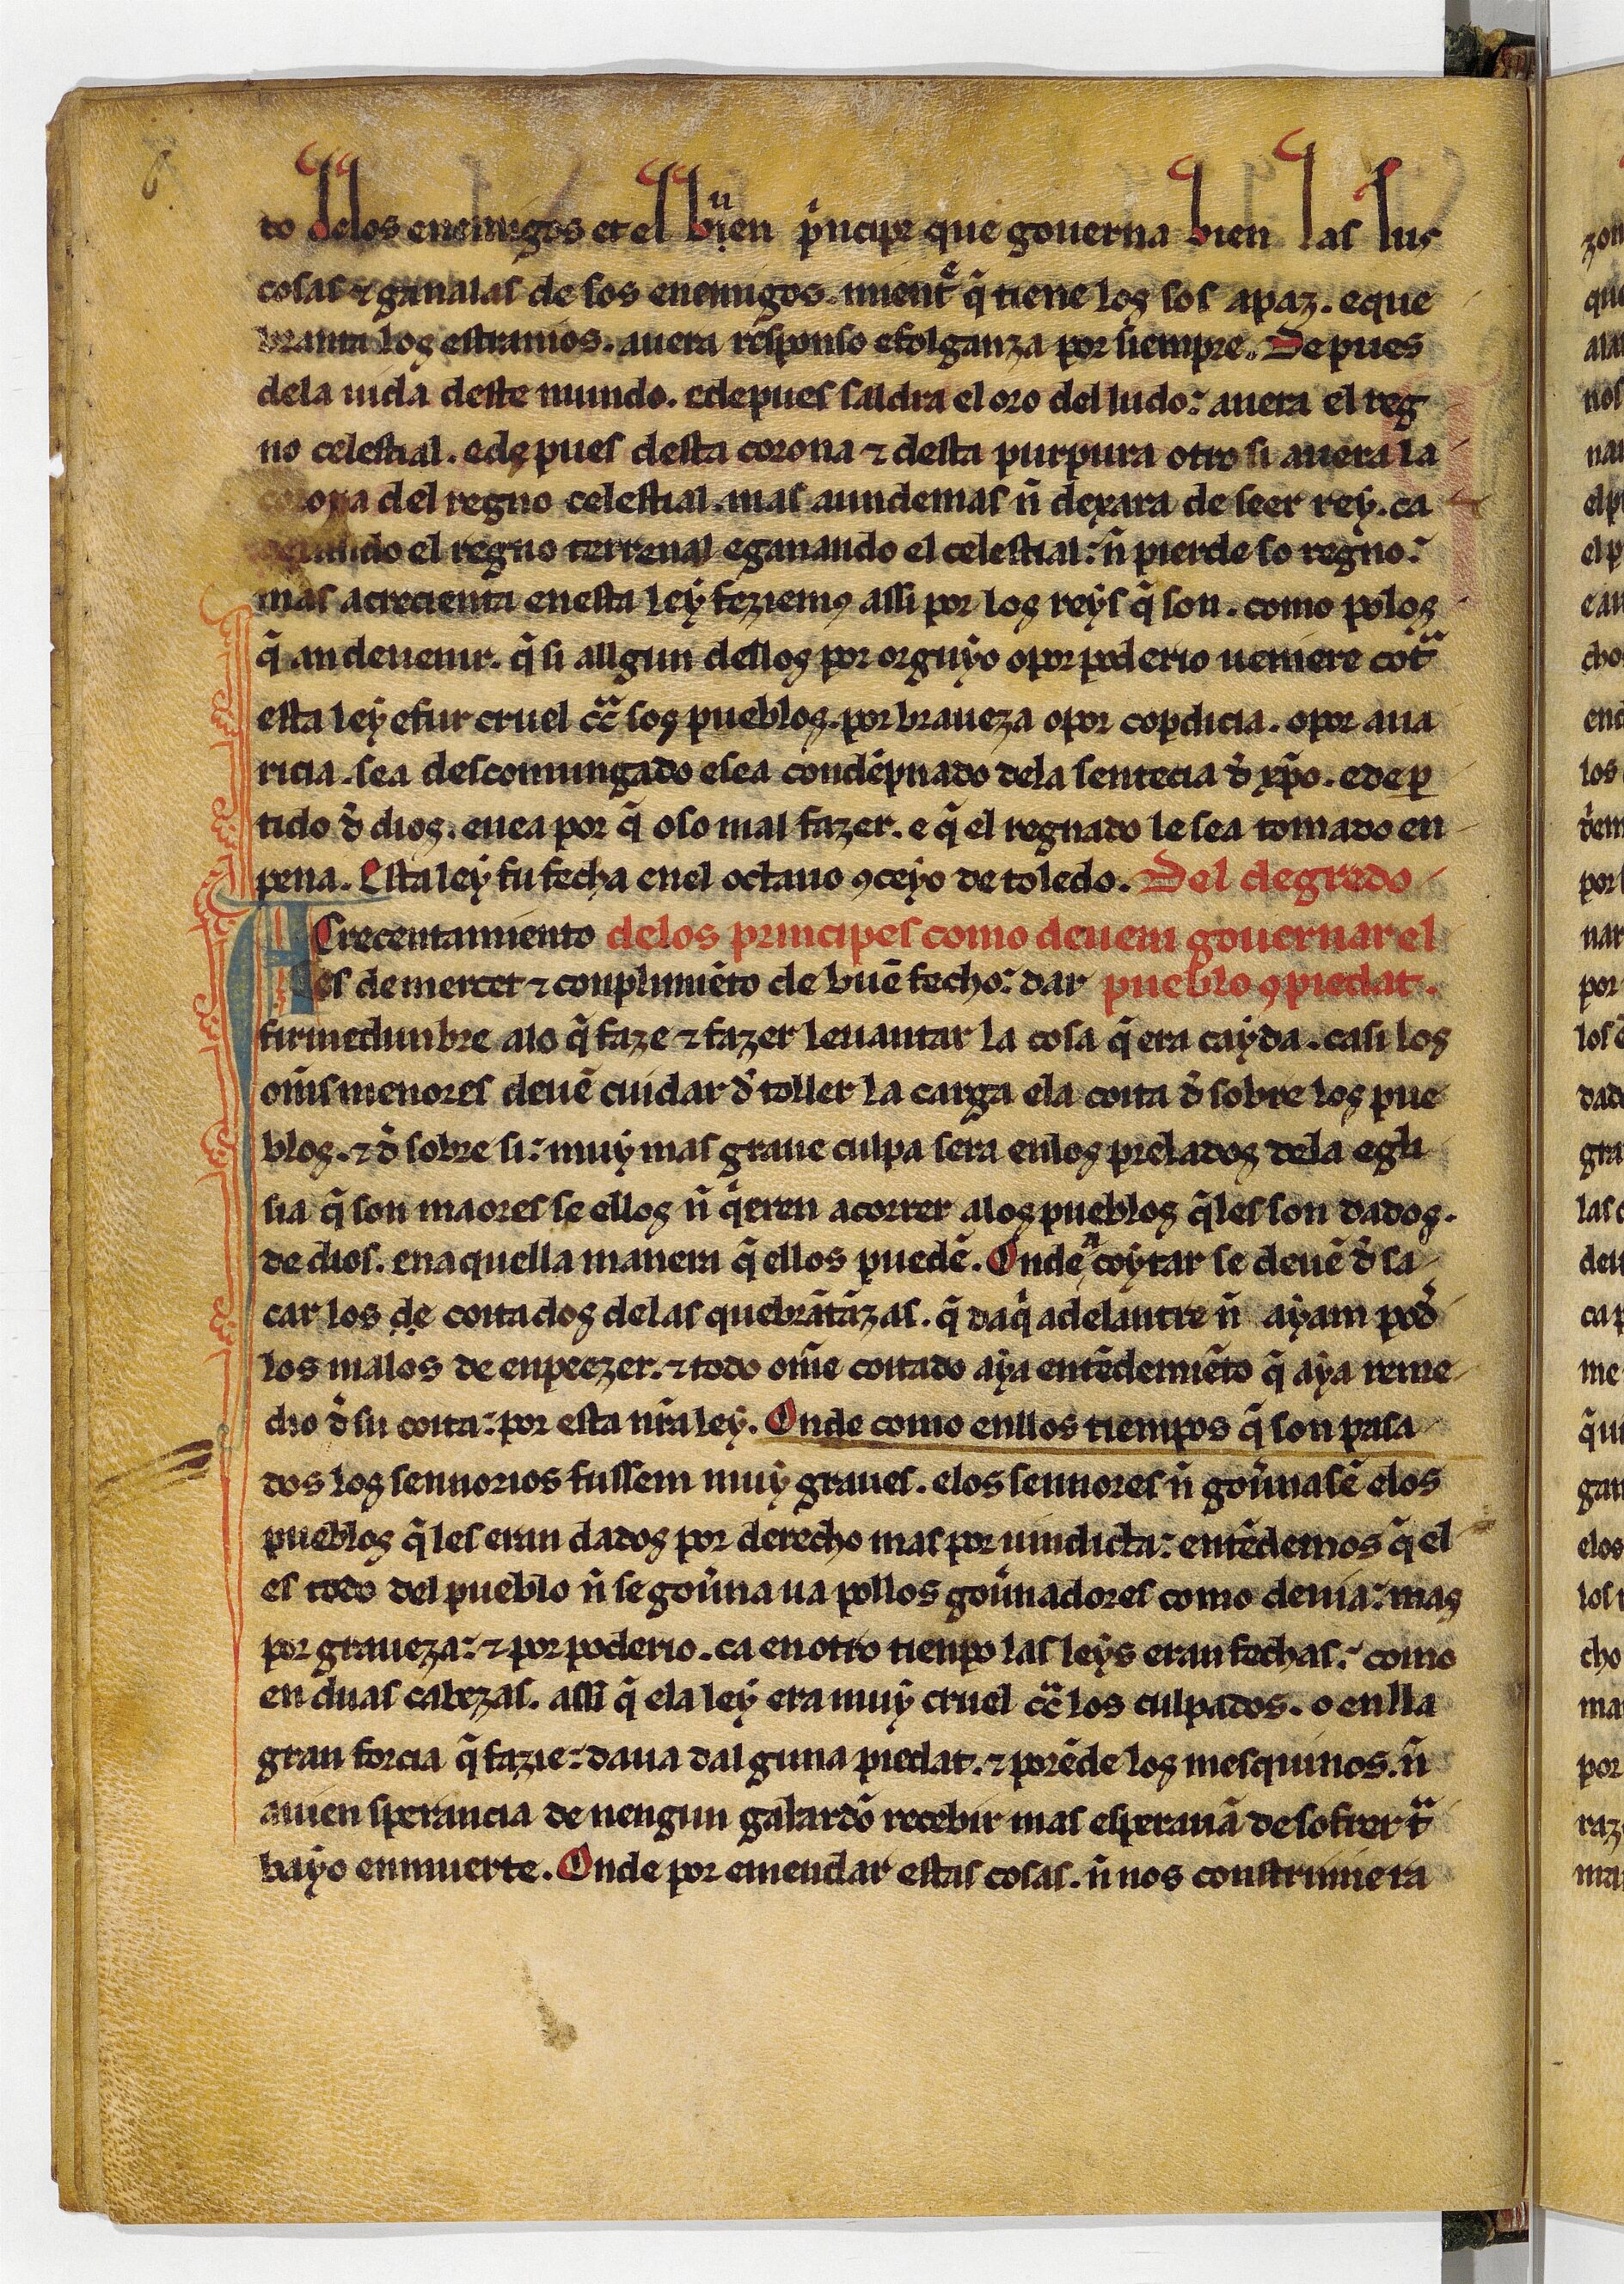 to delos enemigos et el buen p̃ncipe que gouerna bien las sus
cosas ⁊ ganalas de sos enemigos. mient̃ q̃ tiene los sos apaz. eque
branta los estranios. auera responso efolganza por siempre. Depues
dela uida deste mundo. edepues saldra el oro del ludo: auera el reg
no celestial. ede pues desta corona ⁊ desta purpura otro si auera la
corona del regno celestial. mas aundemas ñ dexara de seer rey. ca
do el regno terrenal eganando el celestial: ñ pierde so regno:
mas acrecienta enesta ley feziemꝰ assi por los reys q̃ son. como polos
q̃ an deuenir. q̃ si allgun dellos por orguyo opor poderio ueniere cot̃
esta ley efur cruel cc̃ sos pueblos. por braueza opor copdicia. opor aua
ricia. sea descomungado esea condẽpnado dela sentecia đ xp̃o. edeꝑ
tido đ dios. euea por q̃ oso mal fazer. e q̃ el regnado le sea tomado en
pena. Esta ley fu fecha enel octauo ꝯceyo de toledo. Del degredo
ACrecentamiento delos principes como deuem gouernar el
es de mercet ⁊ conplimiẽto de buẽ fecho: dar pueblo ꝯ piedat.
firmedunbre alo q̃ faze ⁊ fazer leuantar la cosa q̃ era cayda. casi los
om̃s menores deuẽ cuidar đ toller la carga ela coita đ sobre los pue
blos. ⁊ đ sobre si: muy mas graue culpa sera enlos prelados dela egli
sia q̃ son maores se ellos ñ q̃eren acorrer alos pueblos q̃ les son dados.
de dios. enaquella manera q̃ ellos puedẽ. Onde a coytar se deuẽ đ sa
car los de coitados delas quebrãtãzas. q̃ daq̃ adelantre ñ ayam pođ
los malos de enpeezer. ⁊ todo om̃e coitado aya entẽdemiẽto q̃ aya reme
dio đ su coita: por esta nr̃a ley. Onde como enllos tiempos q̃ son pasa
dos los sennorios fussem muy graues. elos sennores ñ goũnasẽ elos
pueblos q̃ les eran dados por derecho mas por uindicta: entẽdemos q̃ el
es todo del pueblo ñ se goũna ua pollos goũnadores como deuia: mas
por graueza: ⁊ por poderio. ca en otro tienpo las leys eran fechas: como
en duas cabezas. assi q̃ ela ley era muy cruel cc̃ los culpados. o en lla
gran forcia q̃ fazie: daua dalguna piedat. ⁊ porẽde los mesquinos. ñ
auien sperancia de nengun galardõ recebir mas esperauã de sofrer t̃
bayo enmuerte. Onde por emendar estas cosas. ñ nos constrinnera